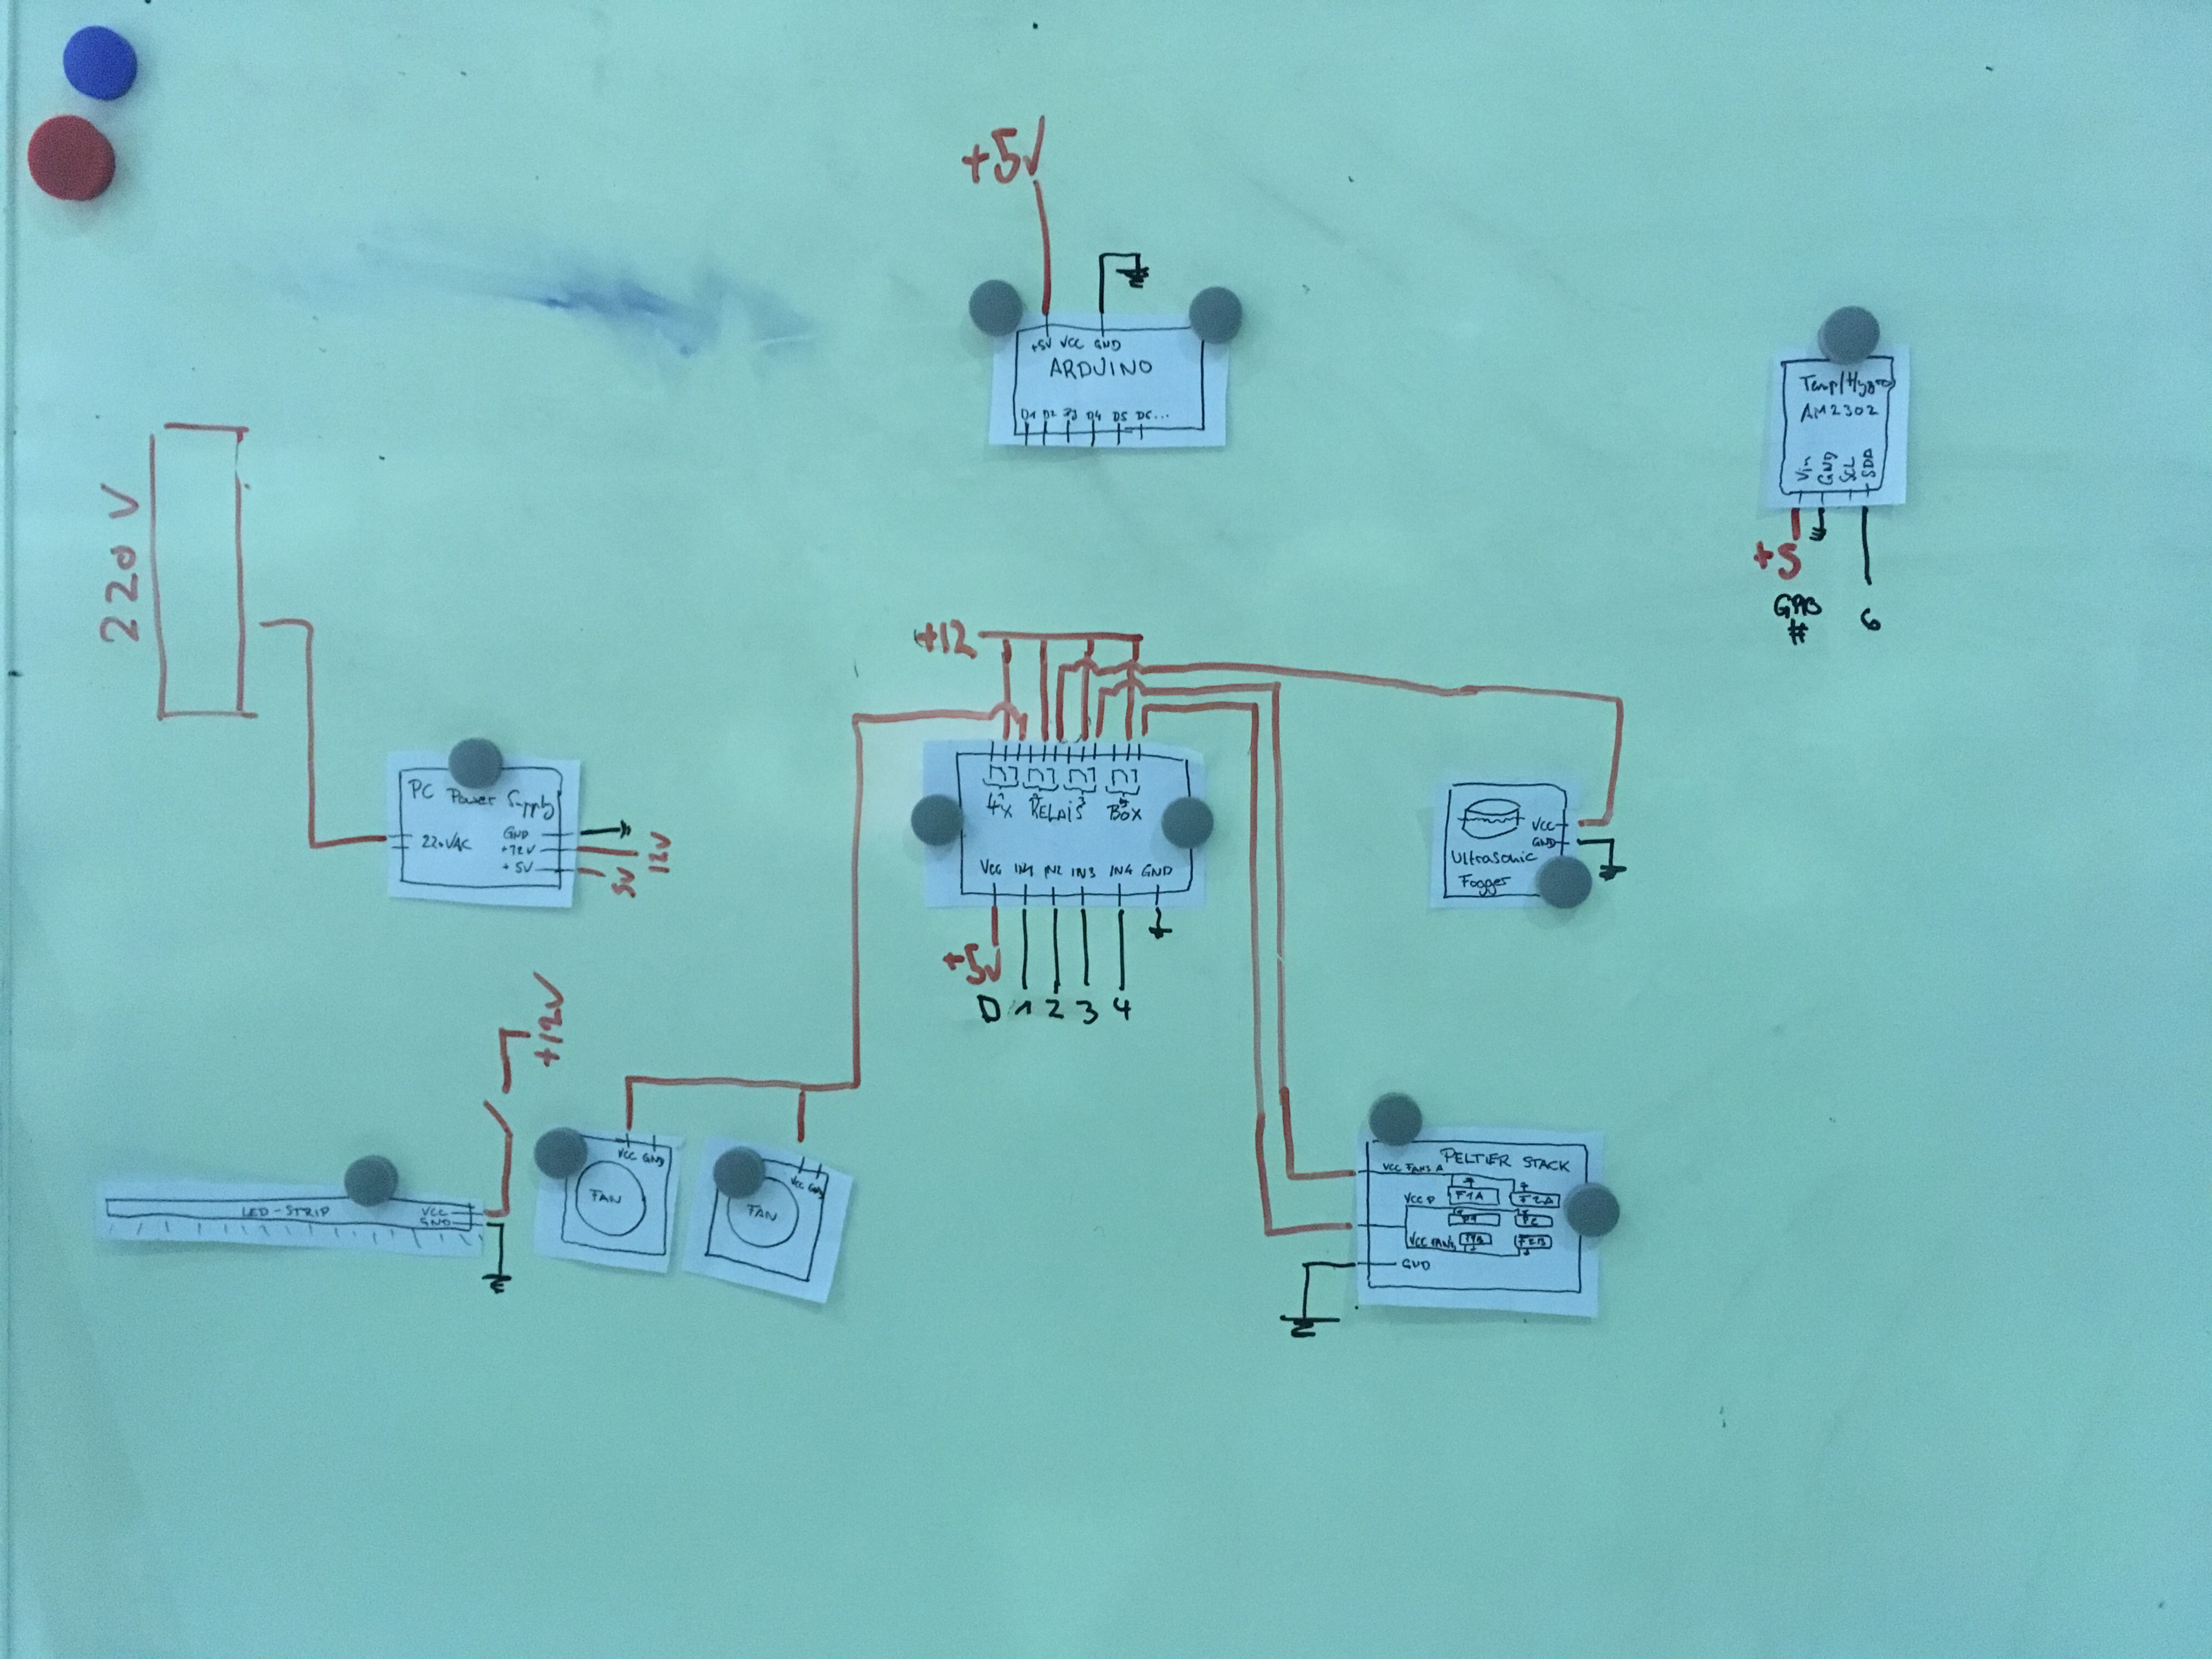 +5V
+5V VCC GND
ARDUINO
D1 D2 D3 D4 D5 D6...
Temp/Hygro
AM2302
Vin
GND
SCL
SDA
+5
#
6
220 V
+12
PC Power Supply
220VAC
GND
+12V
+5V
12V
5V
4X RELAIS BOX
VCC IN1 IN2 IN3 IN4 GND
+5V
D 1 2 3 4
VCC
GND
Ultrasonic
Fogger
+12V
LED-STRIP
VCC
GND
VCC GND
FAN
VCC GND
FAN
PELTIER STACK
VCC FANS A
VCC P
F1A F2A
P1 P2
F1B F2B
GND